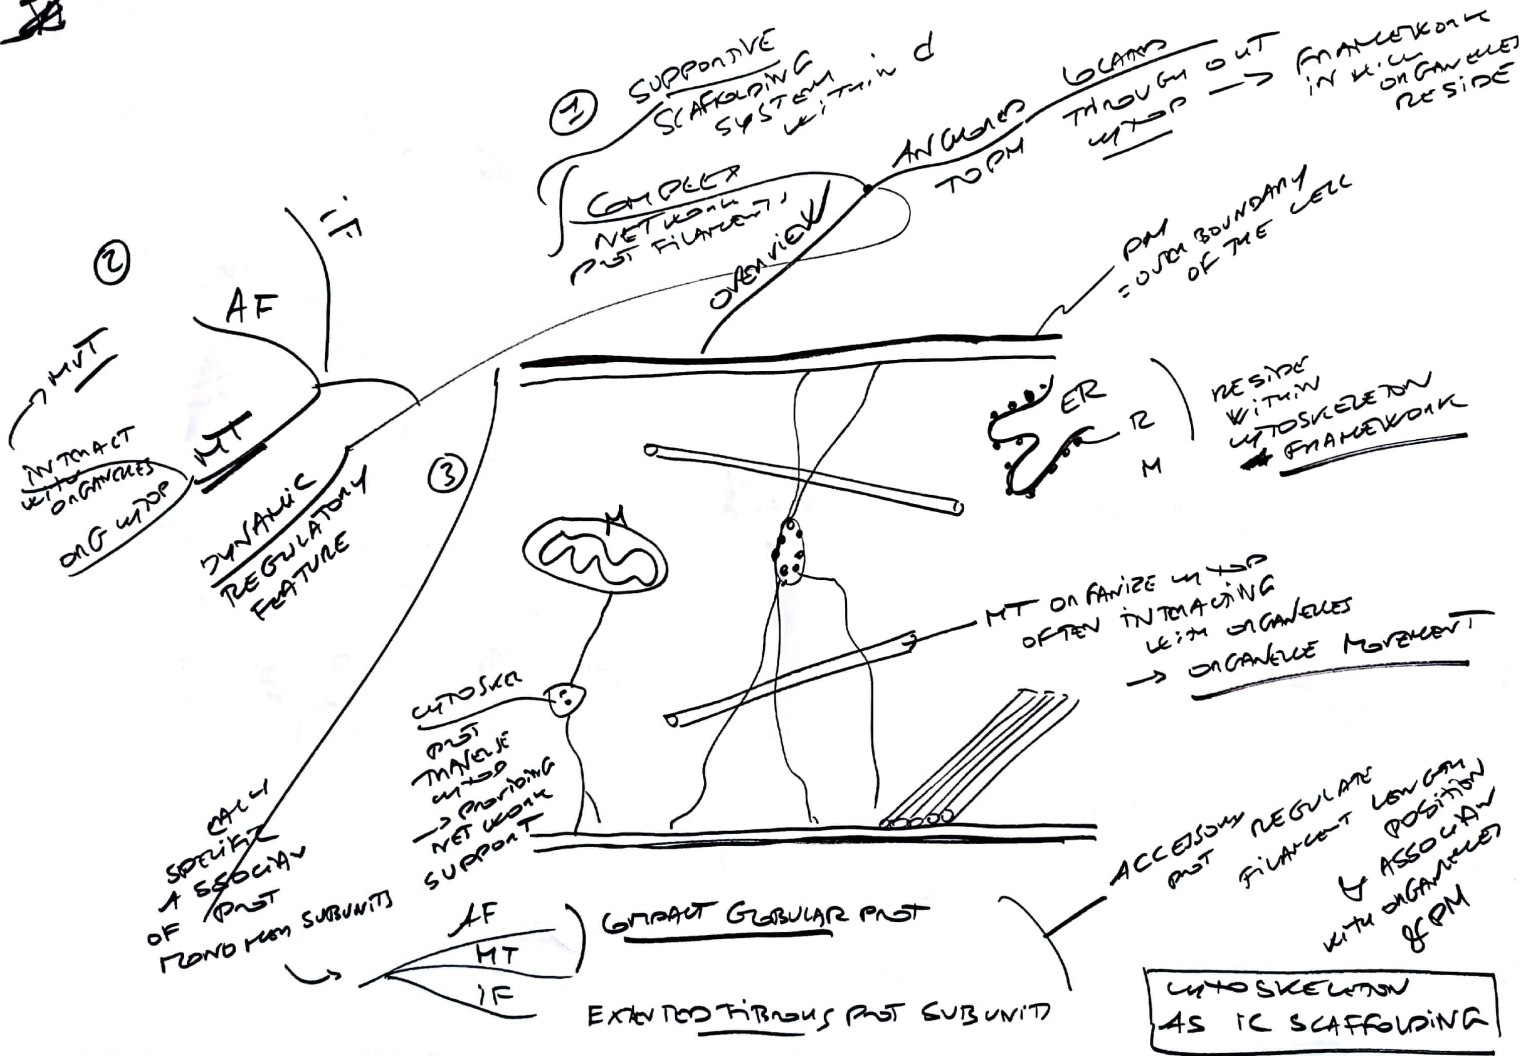 ①
SUPPORTIVE
SCAFFOLDING
SYSTEM
within d
COMPLEX
NETWORK
PROT FILAMENTS
OVERVIEW
ANCHORED
TO PM
LOCATED
THROUGH OUT
CYTOP
→ FRAMEWORK
IN WICH
ORGANELLES
RESIDE
PM
= OUTER BOUNDARY
OF THE CELL
②
IF
AF
MT
→ MVT
INTERACT
WITH
ORGANELLES
ORG CYTOP
DYNAMIC
REGULATORY
FEATURE
③
M
ER
R
M
RESIDE
WITHIN
CYTOSKELETON
FRAMEWORK
MT ORGANIZE CYTOP
OFTEN INTERACTING
WITH ORGANELLES
→ ORGANELLE MOVEMENT
CYTOSKEL
PROT
TRAVERSE
CYTOP
→ PROVIDING
NETWORK
SUPPORT
EACH
SPECIFIC
ASSOCIAN
OF PROT
MONOMER SUBUNITS
→
AF
MT
IF
COMPACT GLOBULAR PROT
EXTENTED FIBROUS PROT SUBUNITS
ACCESSORY
PROT REGULATE
FILAMENT LENGTH
POSITION
& ASSOCIAN
WITH ORGANELLES
& PM
CYTOSKELETON
AS IC SCAFFOLDING